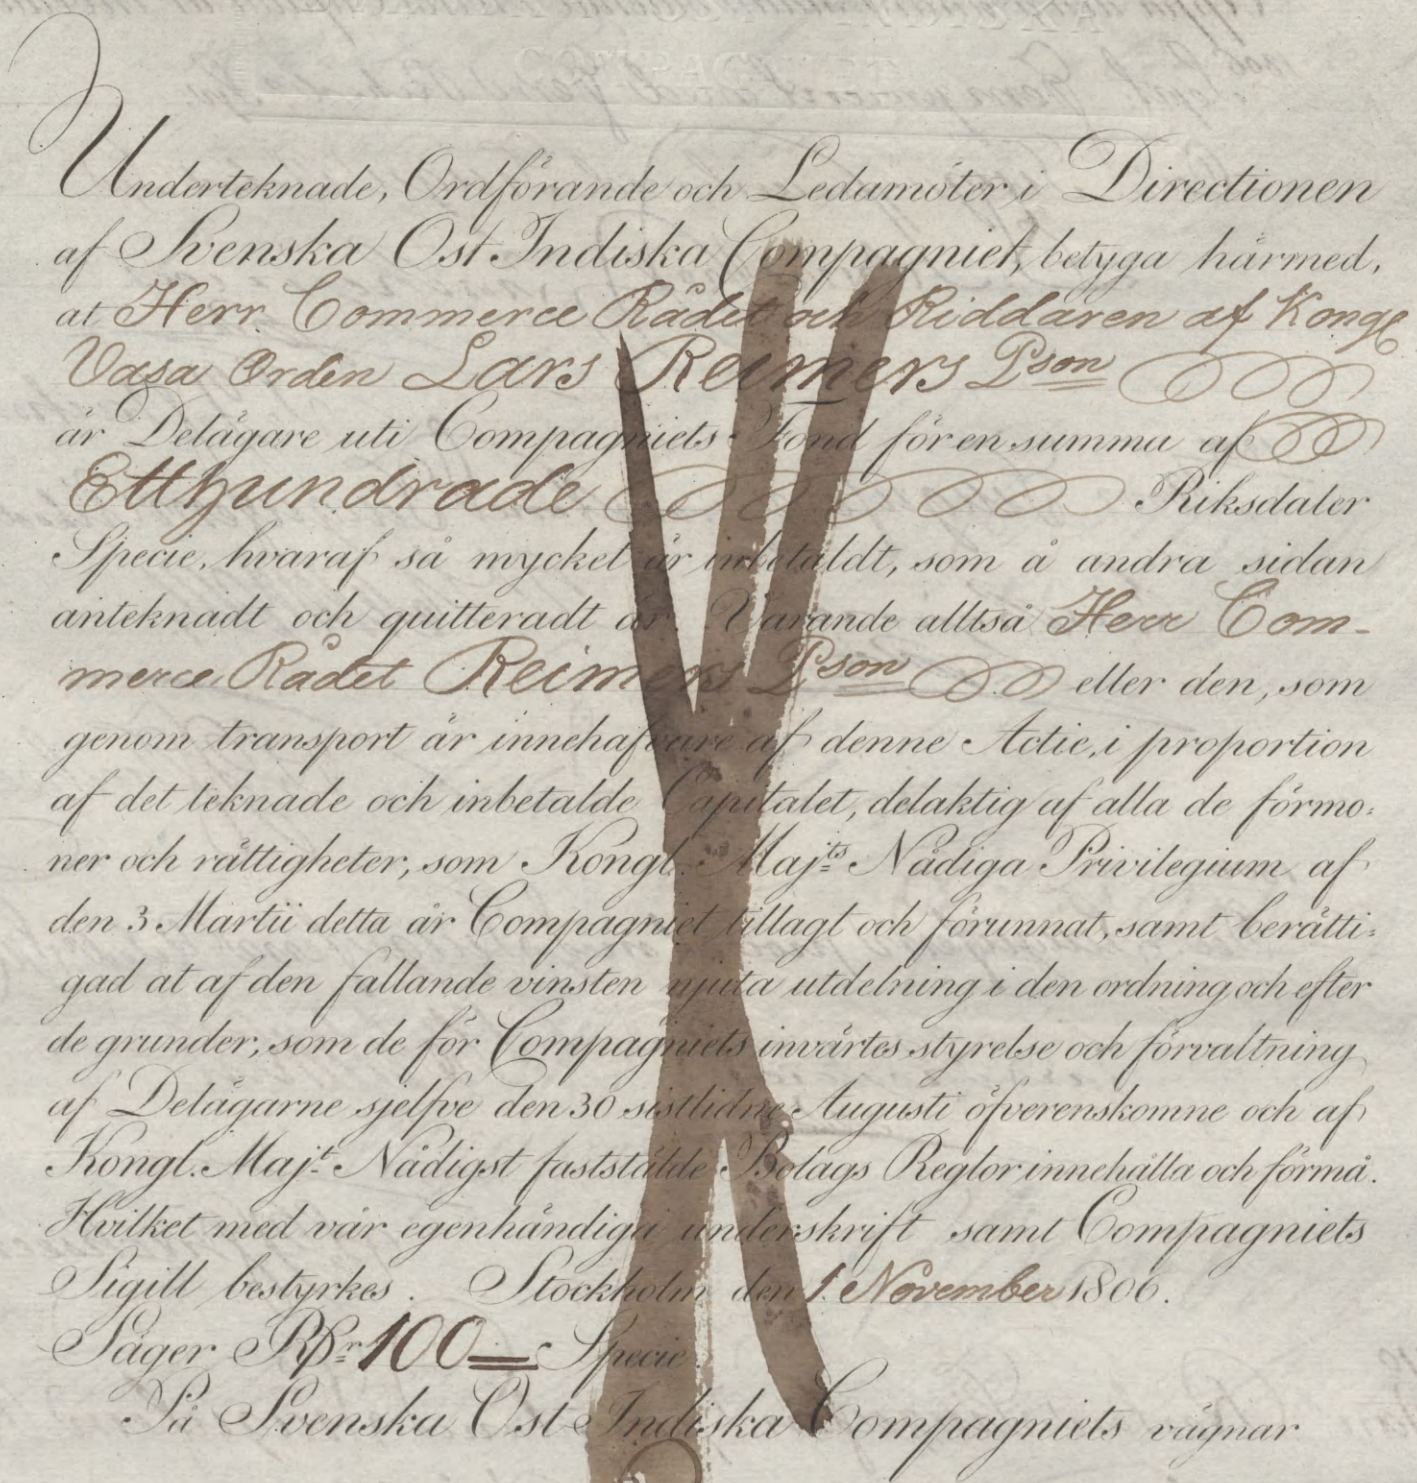 Underteknade, Ordförande och Ledamöter i Directionen
af Svenska Ost Indiska Compagniet, betyga härmed,
at Herr Commerce Rådet och Riddaren af Kongl
Vasa Orden Lars Reimers Pson
är Delägare uti Compagniets Fond för en summa af
Etthundrade Riksdaler
Specie, hvaraf så mycket är inbetaldt, som å andra sidan
anteknadt och quitteradt är. Varande alltså Herr Com-
merce Rådet Reimers Pson eller den, som
genom transport är innehafvare af denne Actie, i proportion
af det teknade och inbetalde Capitalet, delaktig af alla de förmo:
ner och rättigheter, som Kongl. Maj:ts Nådiga Privilegium af
den 3 Martii detta år Compagniet tillagt och förunnat, samt berätti:
gad at af den fallande vinsten njuta utdelning i den ordning och efter
de grunder, som de för Compagniets invärtes styrelse och förvaltning
af Delägarne sjelfve den 30 sistlidne Augusti öfverenskomne och af
Kongl. Maj:t Nådigst faststälde Bolags Reglor innehålla och förmå.
Hvilket med vår egenhändiga underskrift samt Compagniets
Sigill bestyrkes. Stockholm den 1. November 1806.
Säger RDr 100 Specie.
På Svenska Ost Indiska Compagniets vägnar